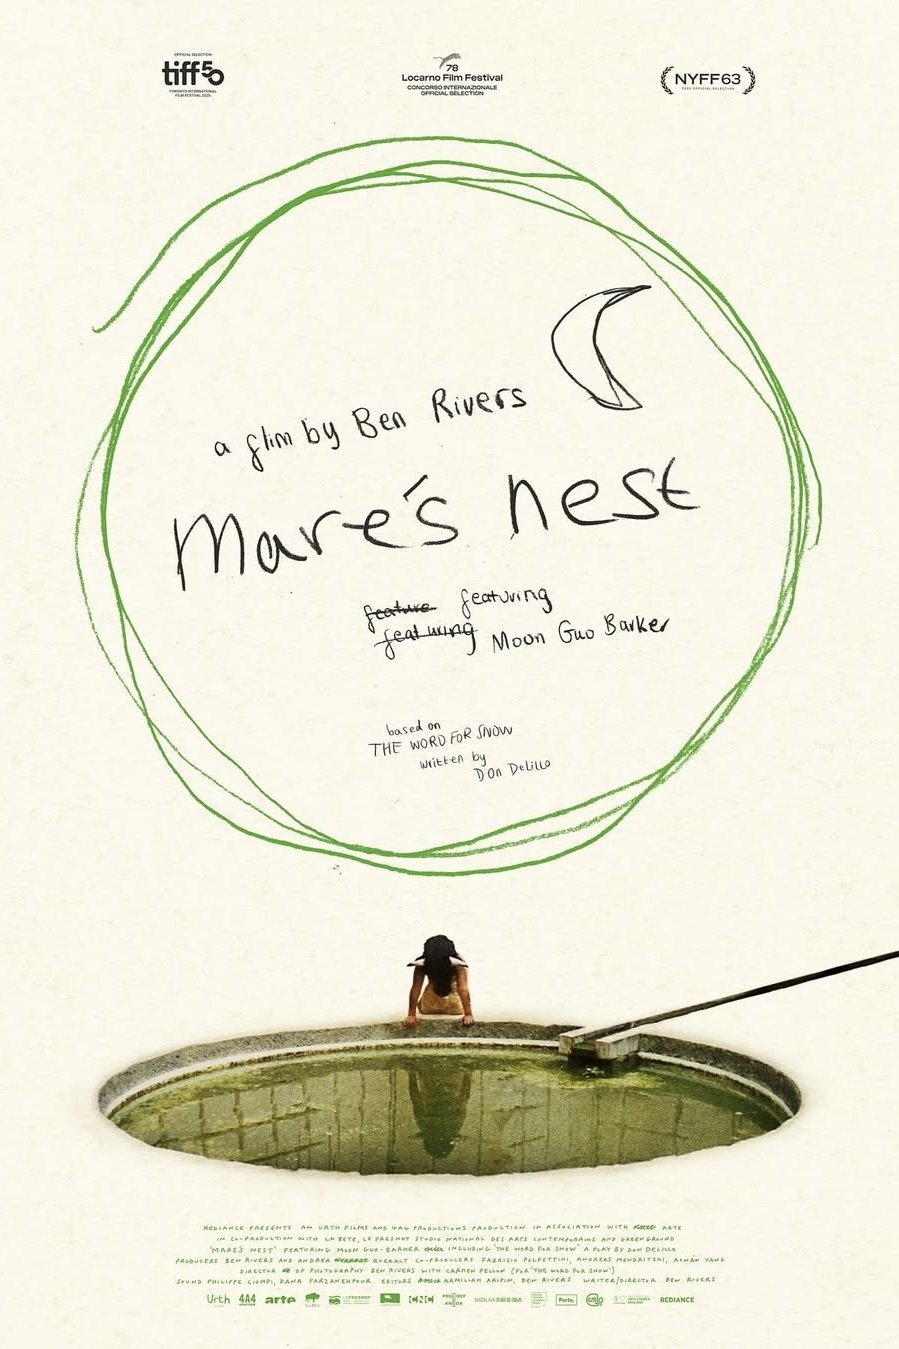 OFFICIAL SELECTION
tiff50
TORONTO INTERNATIONAL
FILM FESTIVAL 2025
78
Locarno Film Festival
CONCORSO INTERNAZIONALE
OFFICIAL SELECTION
NYFF63
2025 OFFICIAL SELECTION
a film by Ben Rivers
Mare's nest
feature featuring
featuring Moon Guo Barker
based on
THE WORD FOR SNOW
written by
DON DeLillo
REDIANCE PRESENTS AN URTH FILMS AND 4A4 PRODUCTIONS PRODUCTION IN ASSOCIATION WITH ARTE
IN CO-PRODUCTION WITH LA BÊTE, LE FRESNOY STUDIO NATIONAL DES ARTS CONTEMPORAINS AND GREENGROUND
'MARE'S NEST' FEATURING MOON GUO-BARKER INCLUDING 'THE WORD FOR SNOW' A PLAY BY DON DELILLO
PRODUCERS BEN RIVERS AND ANDREA QUERALT CO-PRODUCERS FABRIZIO POLPETTINI, ANDREAS MENDRITZKI, AONAN YANG
DIRECTOR OF PHOTOGRAPHY BEN RIVERS WITH CARMEN PELLON (FOR 'THE WORD FOR SNOW')
SOUND PHILIPPE CIOMPI, DANA FARZANEHPOUR EDITORS ARMILIAH ARIPIN, BEN RIVERS WRITER/DIRECTOR BEN RIVERS
Urth 4A4 arte LE FRESNOY CNC PROCIREP ANGOA Porto. REDIANCE